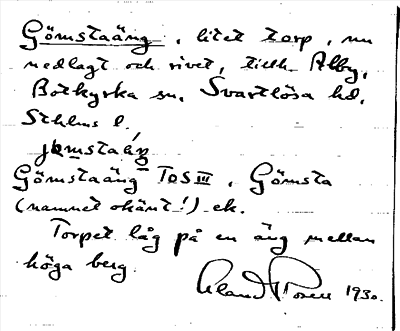 Gömstaäng, litet torp, nu
nedlagt och rivet, tillh. Alby,
Botkyrka sn, Svartlösa hd,
Sthlms l.
jömstaäŋ
Gömstaäng TOS III, Gömsta
(namnet okänt!) ek.
Torpet låg på en äng mellan
höga berg.
1930.